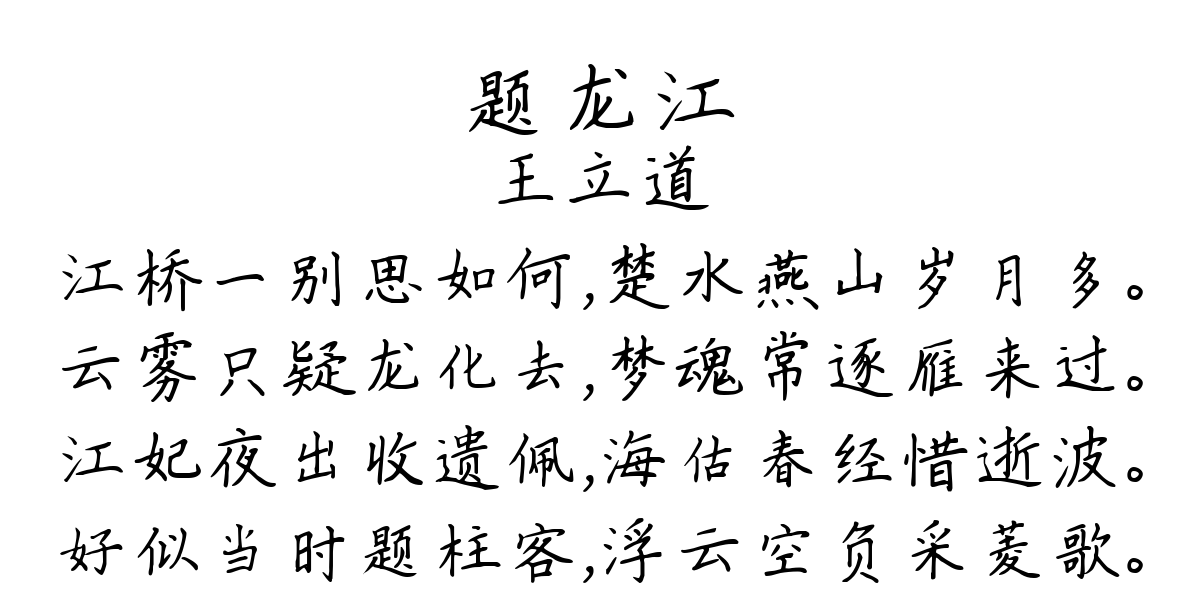 题龙江
王立道
江桥一别思如何,楚水燕山岁月多。
云雾只疑龙化去,梦魂常逐雁来过。
江妃夜出收遗佩,海估春经惜逝波。
好似当时题柱客,浮云空负采菱歌。